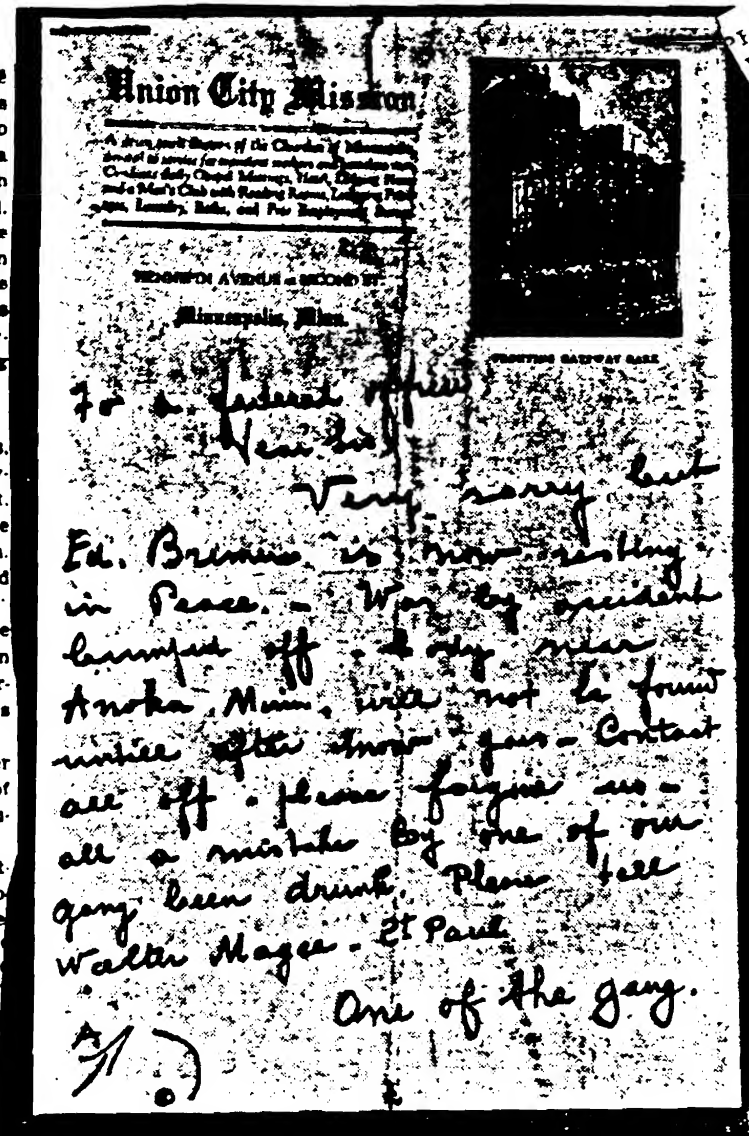 Union City Mission
HENNEPIN AVENUE at SECOND ST.
Minneapolis, Minn.
FRONTING GATEWAY PARK
To a federal officer
Dear Sir
Very sorry but
Ed. Bremer is now resting
in Peace. - Was by accident
bumped off - Body near
Anoka, Minn. will not be found
untill after snow goes - Contact
all off - please forgive us -
all a mistake by one of our
gang been drunk. Please tell
Walter Magee - St Paul
One of the gang.